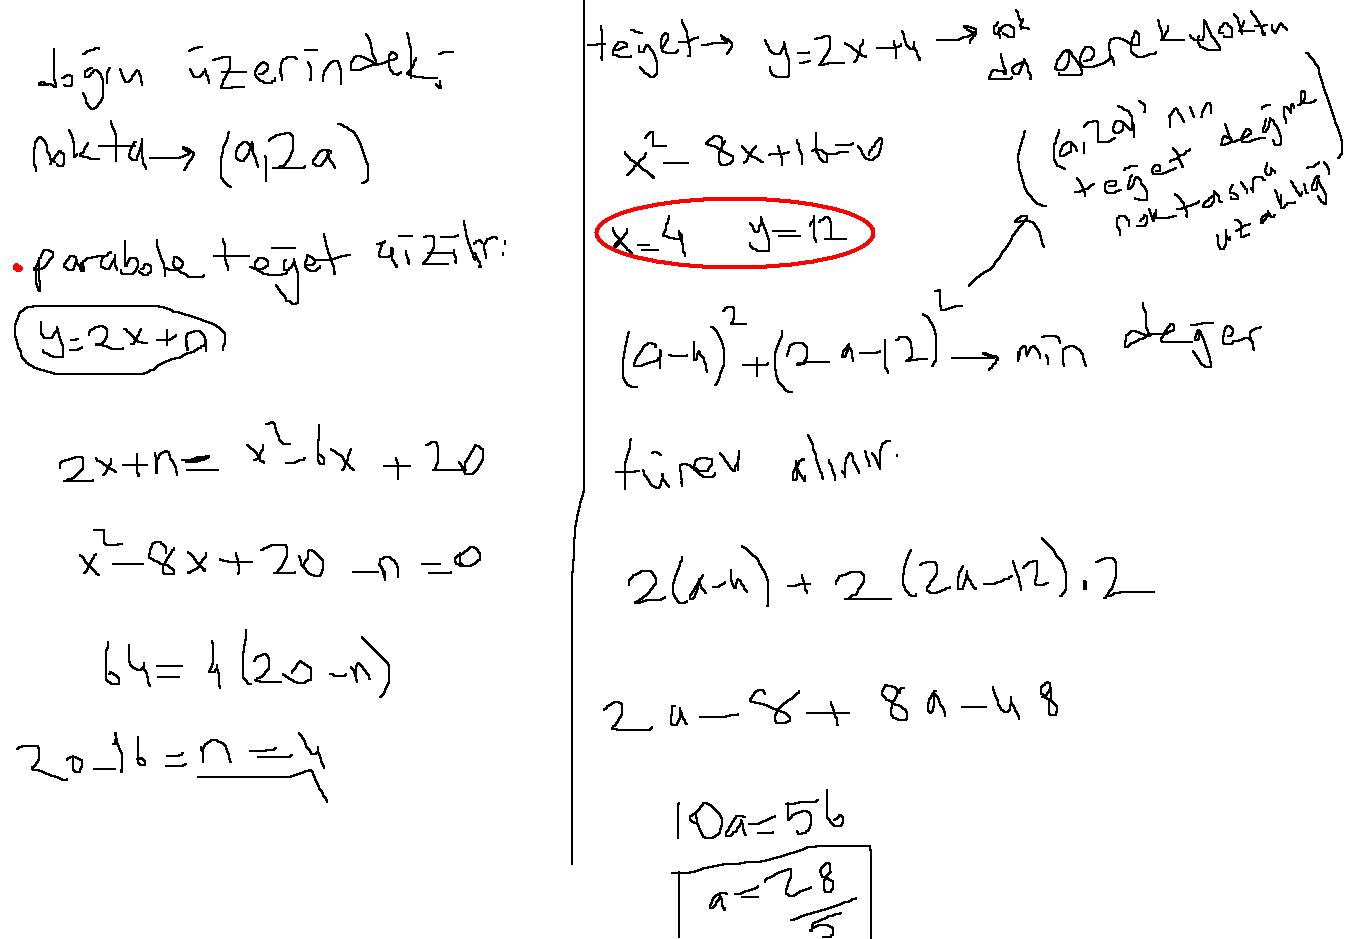 doğru üzerindeki
nokta → (a,2a)
parabole teğet çizilir.
y=2x+n
2x+n= x²-6x+20
x²-8x+20-n=0
64=4(20-n)
20-16=n=4
teğet → y=2x+4 → çok
da gerek yoktu
x²-8x+16=0
((a,2a)'nın
teğet değme
noktasına
uzaklığı)
x=4 y=12
(a-4)²+(2a-12)² → min değer
türev alınır.
2(a-4)+2(2a-12).2
2a-8+8a-48
10a=56
a=28/5